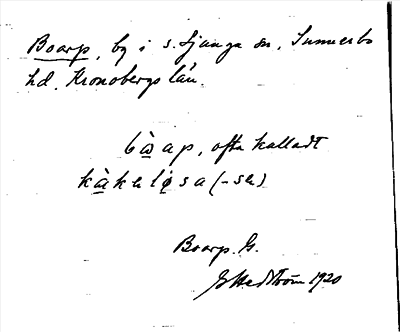 Boarp, by i s. Ljunga sn, Sunnerbo
hd. Kronobergs län.
bàap, ofta kalladt
kàkeløsa (-se)
Boarp. G.
G Hedström 1920